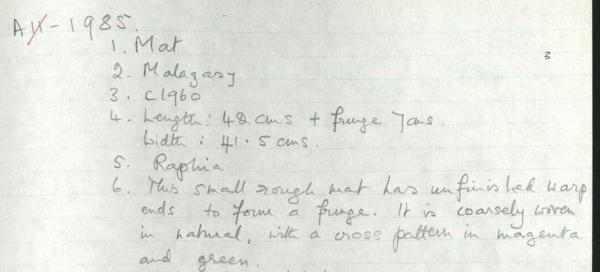 A - 1985.
3
1. Mat
2. Malagasy
3. c1960
4. Length: 42 cms + fringe 7cms.
Width: 41.5 cms.
5. Raphia
6. This small rough mat has unfinished warp
ends to form a fringe. It is coarsely woven
in natural, with a cross pattern in magenta
and green.